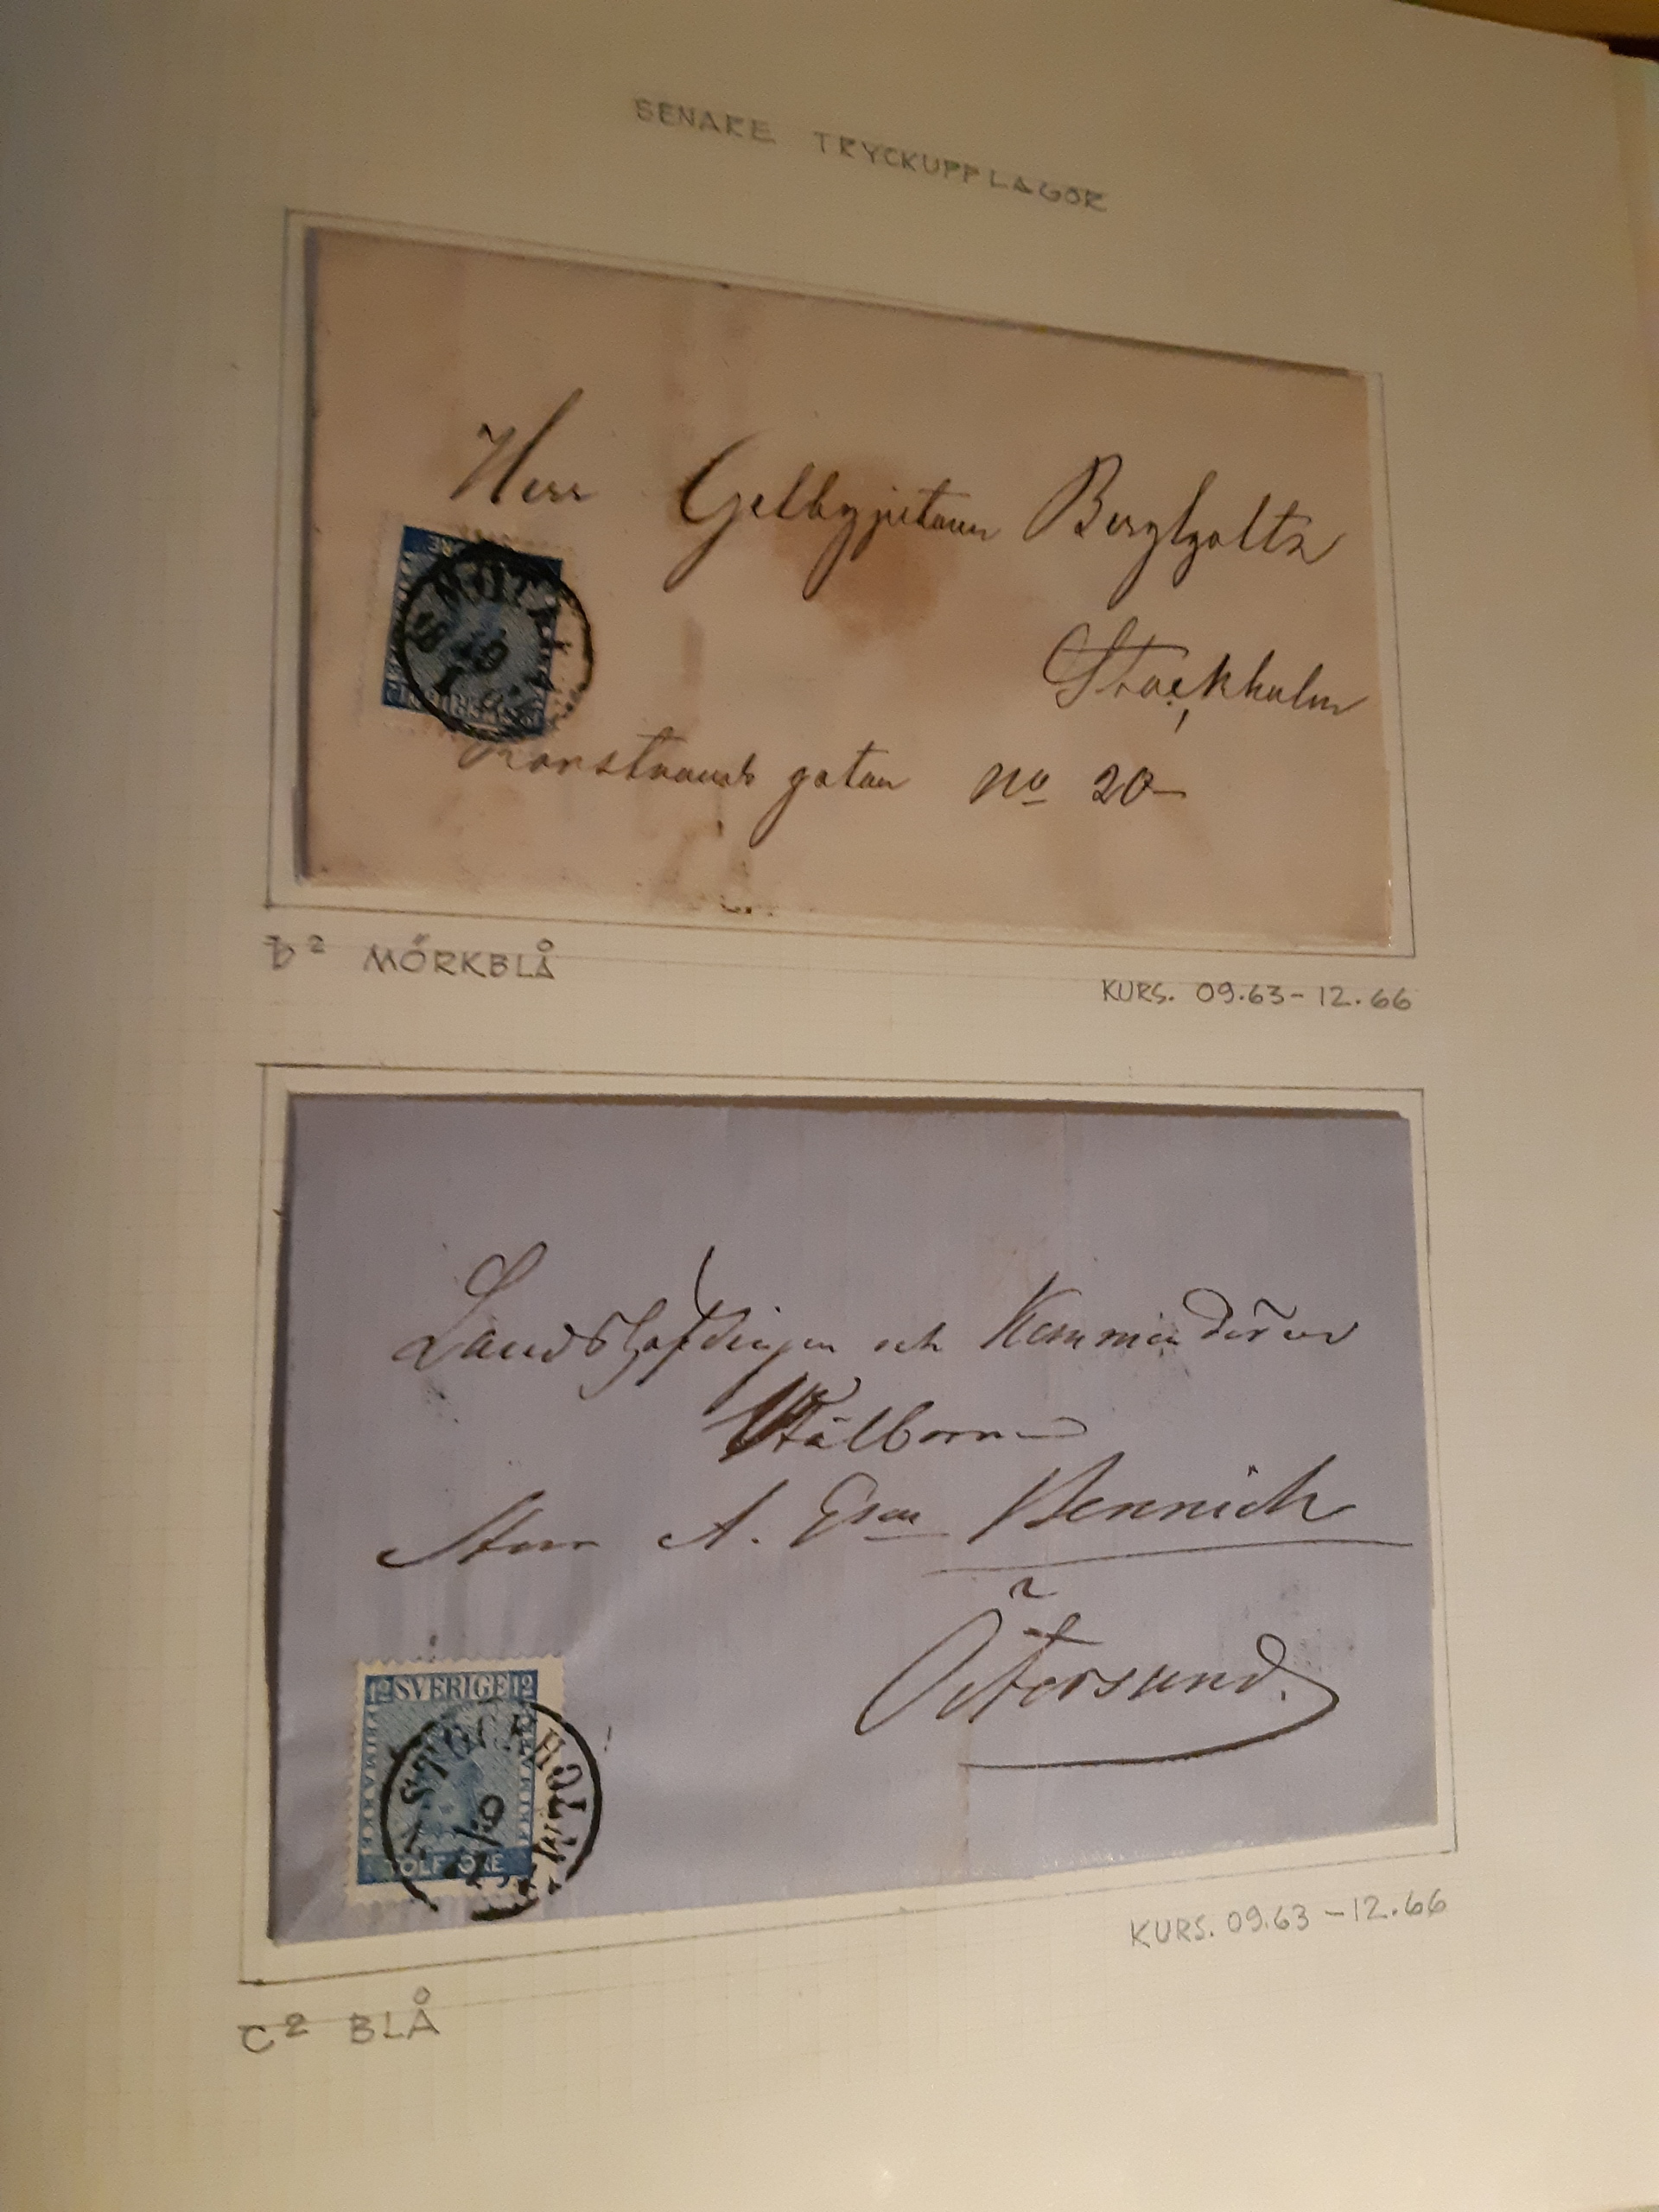 SENARE TRYCKUPPLAGOR
Herr Gelbgjutaren Bergholtz
Stockholm
gatan No 20
b2 MÖRKBLÅ
KURS. 09.63-12.66
Landshöfdingen och Kommendören
Välborne
Herr A. Esm Bennich
Östersund.
12 SVERIGE 12
STOCKHOLM
TOLF ÖRE
KURS. 09.63-12.66
C2 BLÅ